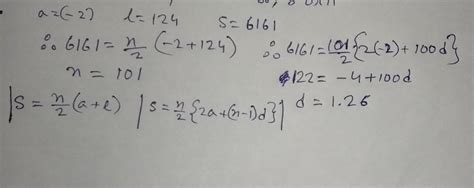 a=(-2) l=124 S=6161
∴ 6161=n/2 (-2+124) ∴ 6161=101/2{2(-2)+100d}
n = 101 122 = -4+100d
|S=n/2(a+l) |S=n/2{2a+(n-1)d}| d = 1.26